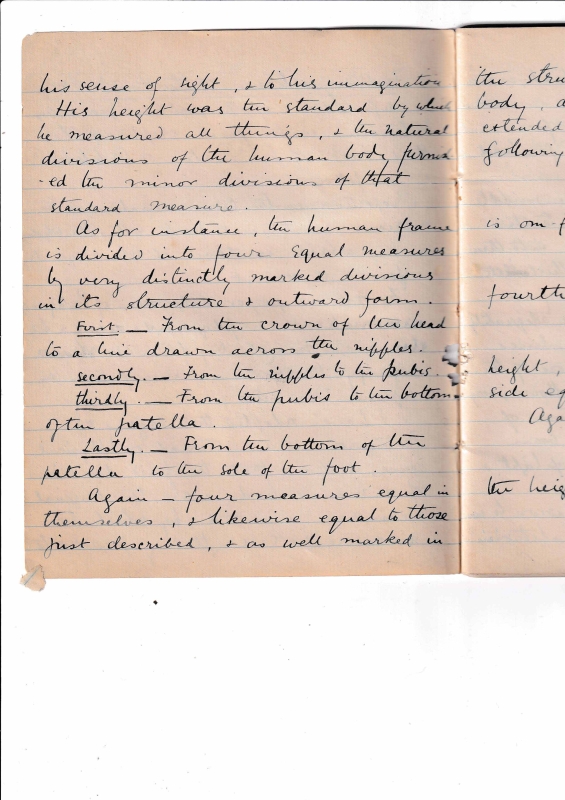 his sense of sight, & to his immagination
His height was the standard by which
he measured all things, & the natural
divisions of the human body furnish
-ed the minor divisions of that
standard measure.
As for instance, the human frame
is divided into four Equal measures
by very distinctly marked divisions
in its structure & outward form.
First. — From the crown of the head
to a line drawn across the nipples.
secondly. — From the nipples to the pubis.
thirdly. — From the pubis to the bottom
of the patella.
Lastly. — From the bottom of the
patella to the sole of the foot.
Again — four measures equal in
themselves, & likewise equal to those
just described, & as well marked in
the stru
body, a
extended
following
is om-f
fourth
height,
side eq
Aga
the heig